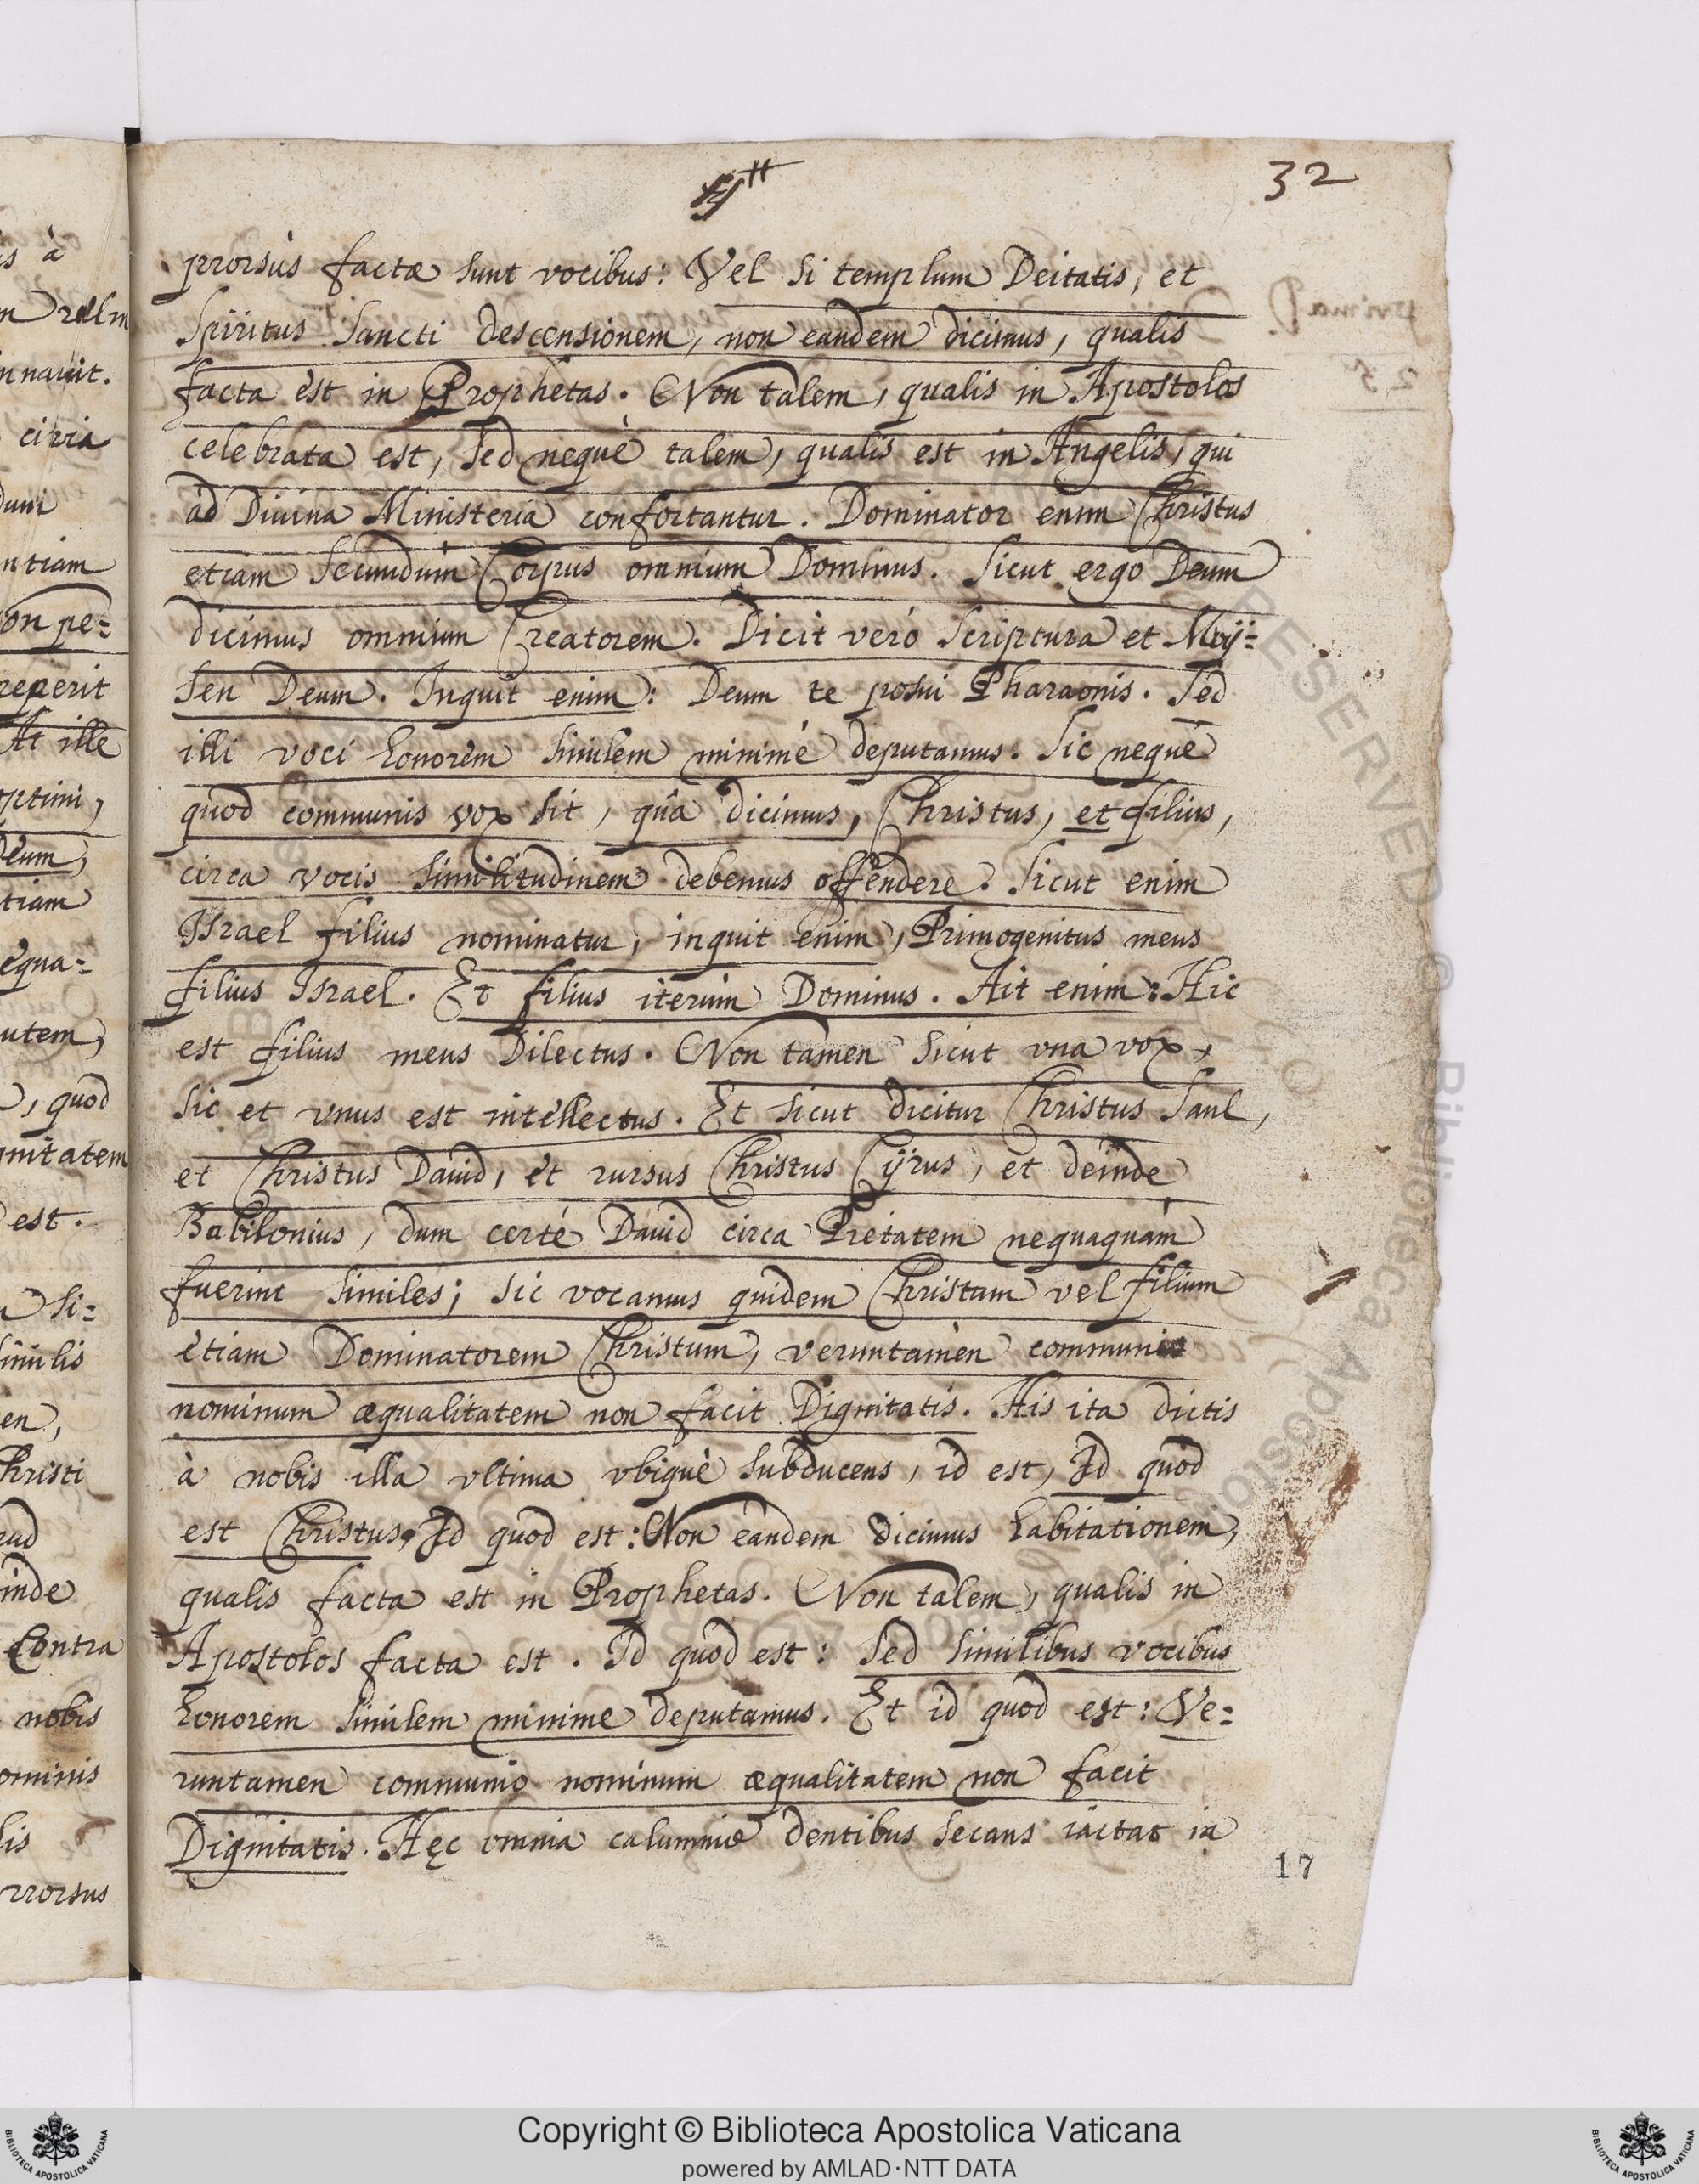 32
prorsùs factæ sunt vocibus: Vel si templum Deitatis, et
Spiritus Sancti descensionem, non eandem dicimus, qualis
facta est in Prophetas. Non talem, qualis in Apostolos
celebrata est, sed neque talem, qualis est in Angelis, qui
ad Diuina Ministeria confortantur. Dominator enim Christus
etiam secundum Corpus omnium Dominus. Sicut ergo Deum
dicimus omnium Creatorem. Dicit verò Scriptura et Moÿ=
sen Deum. Inquit enim: Deum te posui Pharaonis. Sed
illi voci honorem similem minimè deputamus. Sic neque
quod communis vox sit, qua dicimus, Christus, et filius,
circa vocis similitudinem debemus offendere. Sicut enim
Israel filius nominatur, inquit enim, Primogenitus meus
filius Israel. Et filius iterum Dominus. Ait enim: Hic
est filius meus Dilectus. Non tamen sicut vna vox,
sic et vnus est intellectus. Et sicut dicitur Christus Saul,
et Christus Dauid, et rursus Christus Cÿrus, et deinde
Babilonius, dum certè Dauid circa Pietatem nequaquàm
fuerint similes; sic vocamus quidem Christum vel filium
etiam Dominatorem Christum, veruntamen communio
nominum æqualitatem non facit Dignitatis. His ita dictis
à nobis illa vltima vbique subducens, id est, Id quod
est Christus, Id quod est: Non eandem dicimus habitationem,
qualis facta est in Prophetas. Non talem, qualis in
Apostolos facta est. Id quod est: Sed similibus vocibus
honorem similem minime deputamus. Et id quod est: Ve=
runtamen communio nominum æqualitatem non facit
Dignitatis. Hęc omnia calumnie dentibus secans iactat in
17
Copyright © Biblioteca Apostolica Vaticana
powered by AMLAD·NTT DATA